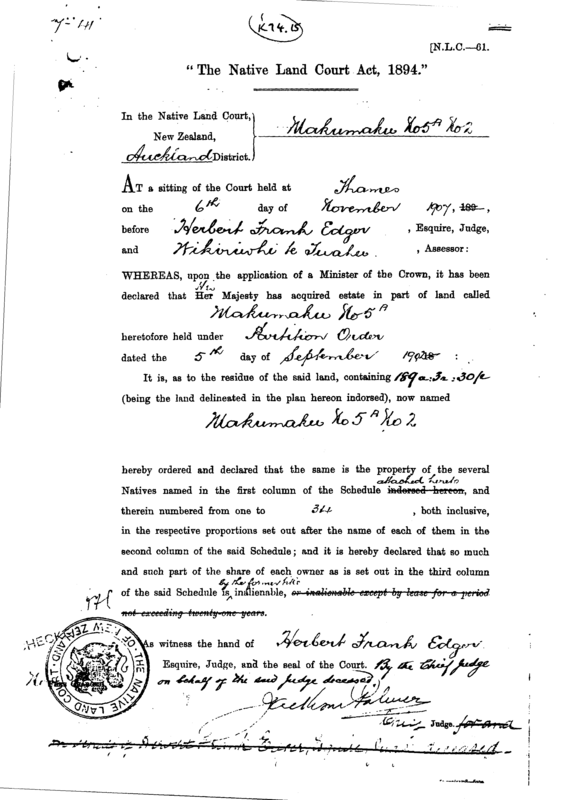 K14.15
[N.L.C.—61.
“The Native Land Court Act, 1894.”
In the Native Land Court,
New Zealand,
Auckland District.
Makumaku No 5A No 2
AT a sitting of the Court held at Thames
on the 6th day of November 1907, 189 ,
before Herbert Frank Edger , Esquire, Judge,
and Wikiriwhi te Tuahu , Assessor:
WHEREAS, upon the application of a Minister of the Crown, it has been
His
declared that Her Majesty has acquired estate in part of land called
Makumaku No 5A
heretofore held under Partition Order
dated the 5th day of September :
It is, as to the residue of the said land, containing 189a:3r:30p
(being the land delineated in the plan hereon indorsed), now named
Makumaku No 5A No 2
hereby ordered and declared that the same is the property of the several
attached hereto
Natives named in the first column of the Schedule indorsed hereon, and
therein numbered from one to 344 , both inclusive,
in the respective proportions set out after the name of each of them in the
second column of the said Schedule; and it is hereby declared that so much
and such part of the share of each owner as is set out in the third column
by the former title
of the said Schedule is inalienable, or inalienable except by lease for a period
not exceeding twenty-one years.
As witness the hand of Herbert Frank Edger
Esquire, Judge, and the seal of the Court. By the Chief Judge
on behalf of the said Judge deceased.)
Jackson Palmer
Chief Judge. for and
deceased
THE NATIVE LAND COURT OF NEW ZEALAND
CHECK